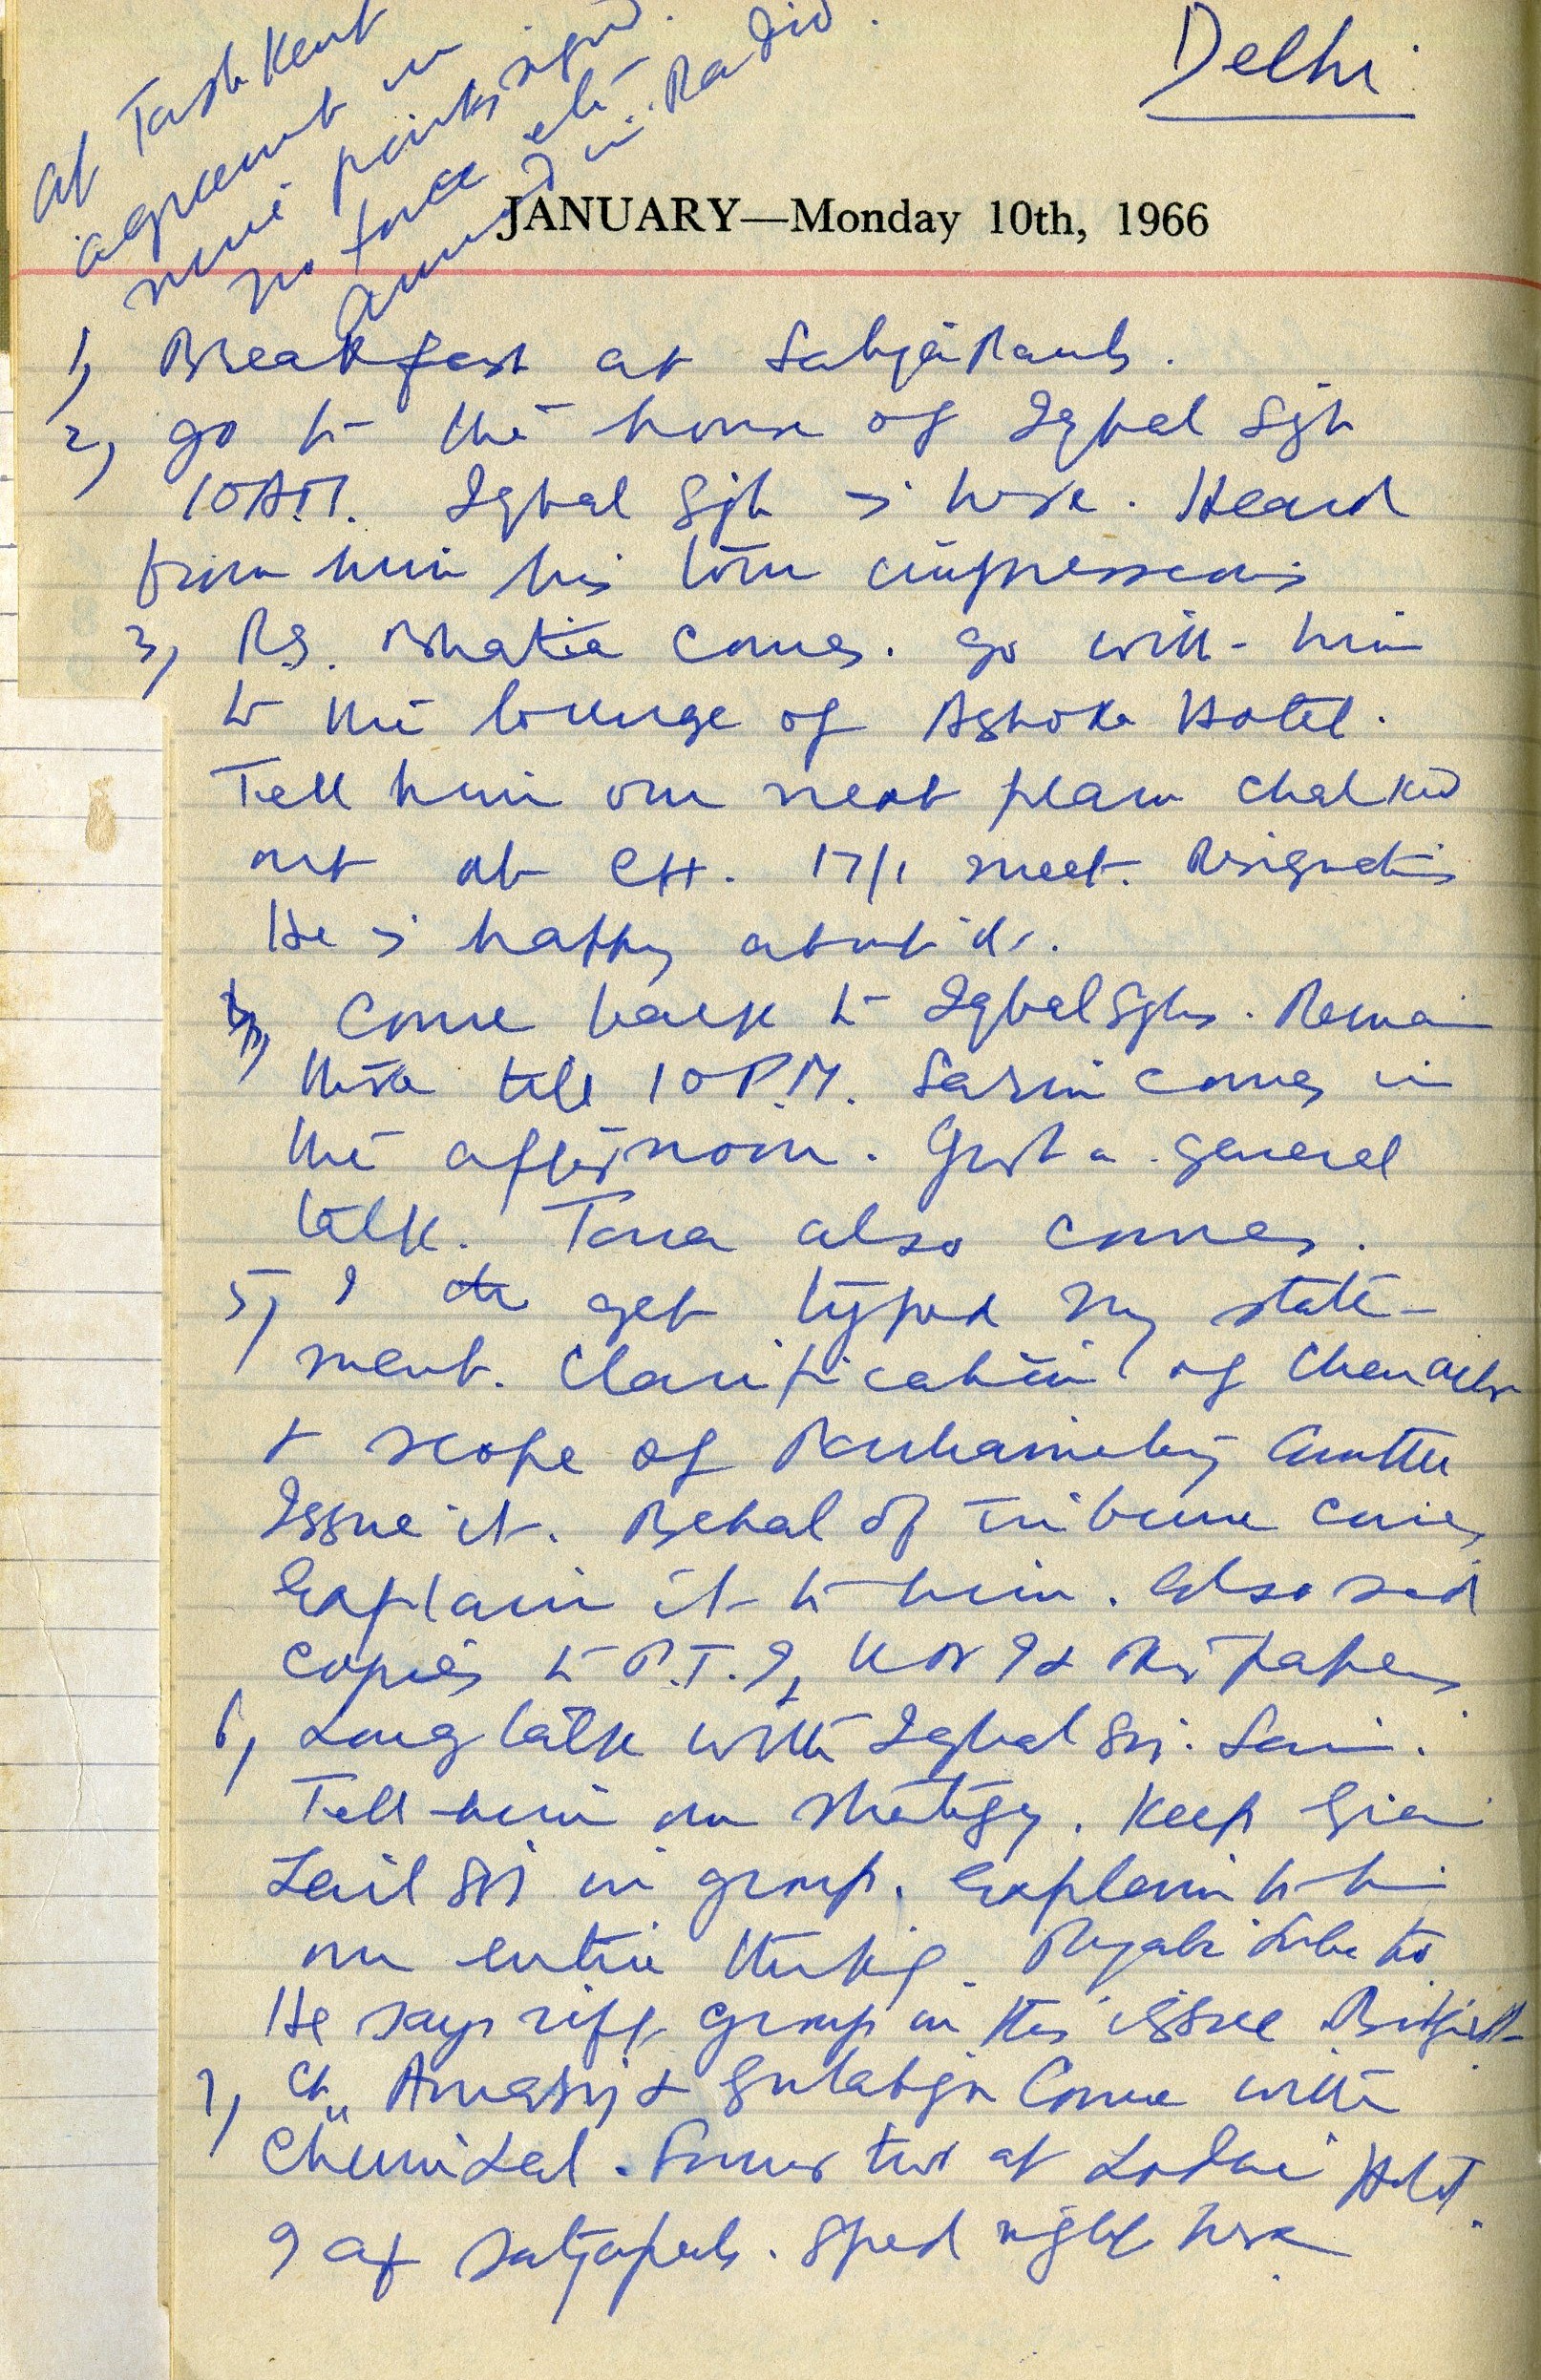 Delhi
At Tashkent
agreement on
nine points signed.
no force etc
announced in Radio.
JANUARY—Monday 10th, 1966
1, Breakfast at
2, go to the house of Iqbal Sgh
10 A.M. Iqbal Sgh is here. Heard
from him his tour impressions
3, R.S. Bhatia comes. go with him
to the lounge of Ashoka Hotel.
Tell him our next plan chalked
out at CH. 17/1 meet. Resignations
He is happy about it.
4, Come back to Iqbal Sghs. Remain
there till 10 P.M. Sarin comes in
the afternoon. Just a general
talk. Tara also comes.
5, I get typed my state-
ment. Clarification of Character
& scope of Parliamentary Cmttee
Issue it. Behal of Tribune comes
Explain it to him. Also send
copies to P.T.I, UNI &
6, Long talk with Iqbal
Tell him our strategy. Keep
in group. Explain to him
our entire thinkg. Punjabi Suba
He says group in this issue
7, Ch. & come with
Chunilal. Former two at Lodhi Hotel.
I at Satyapals. Spend night here